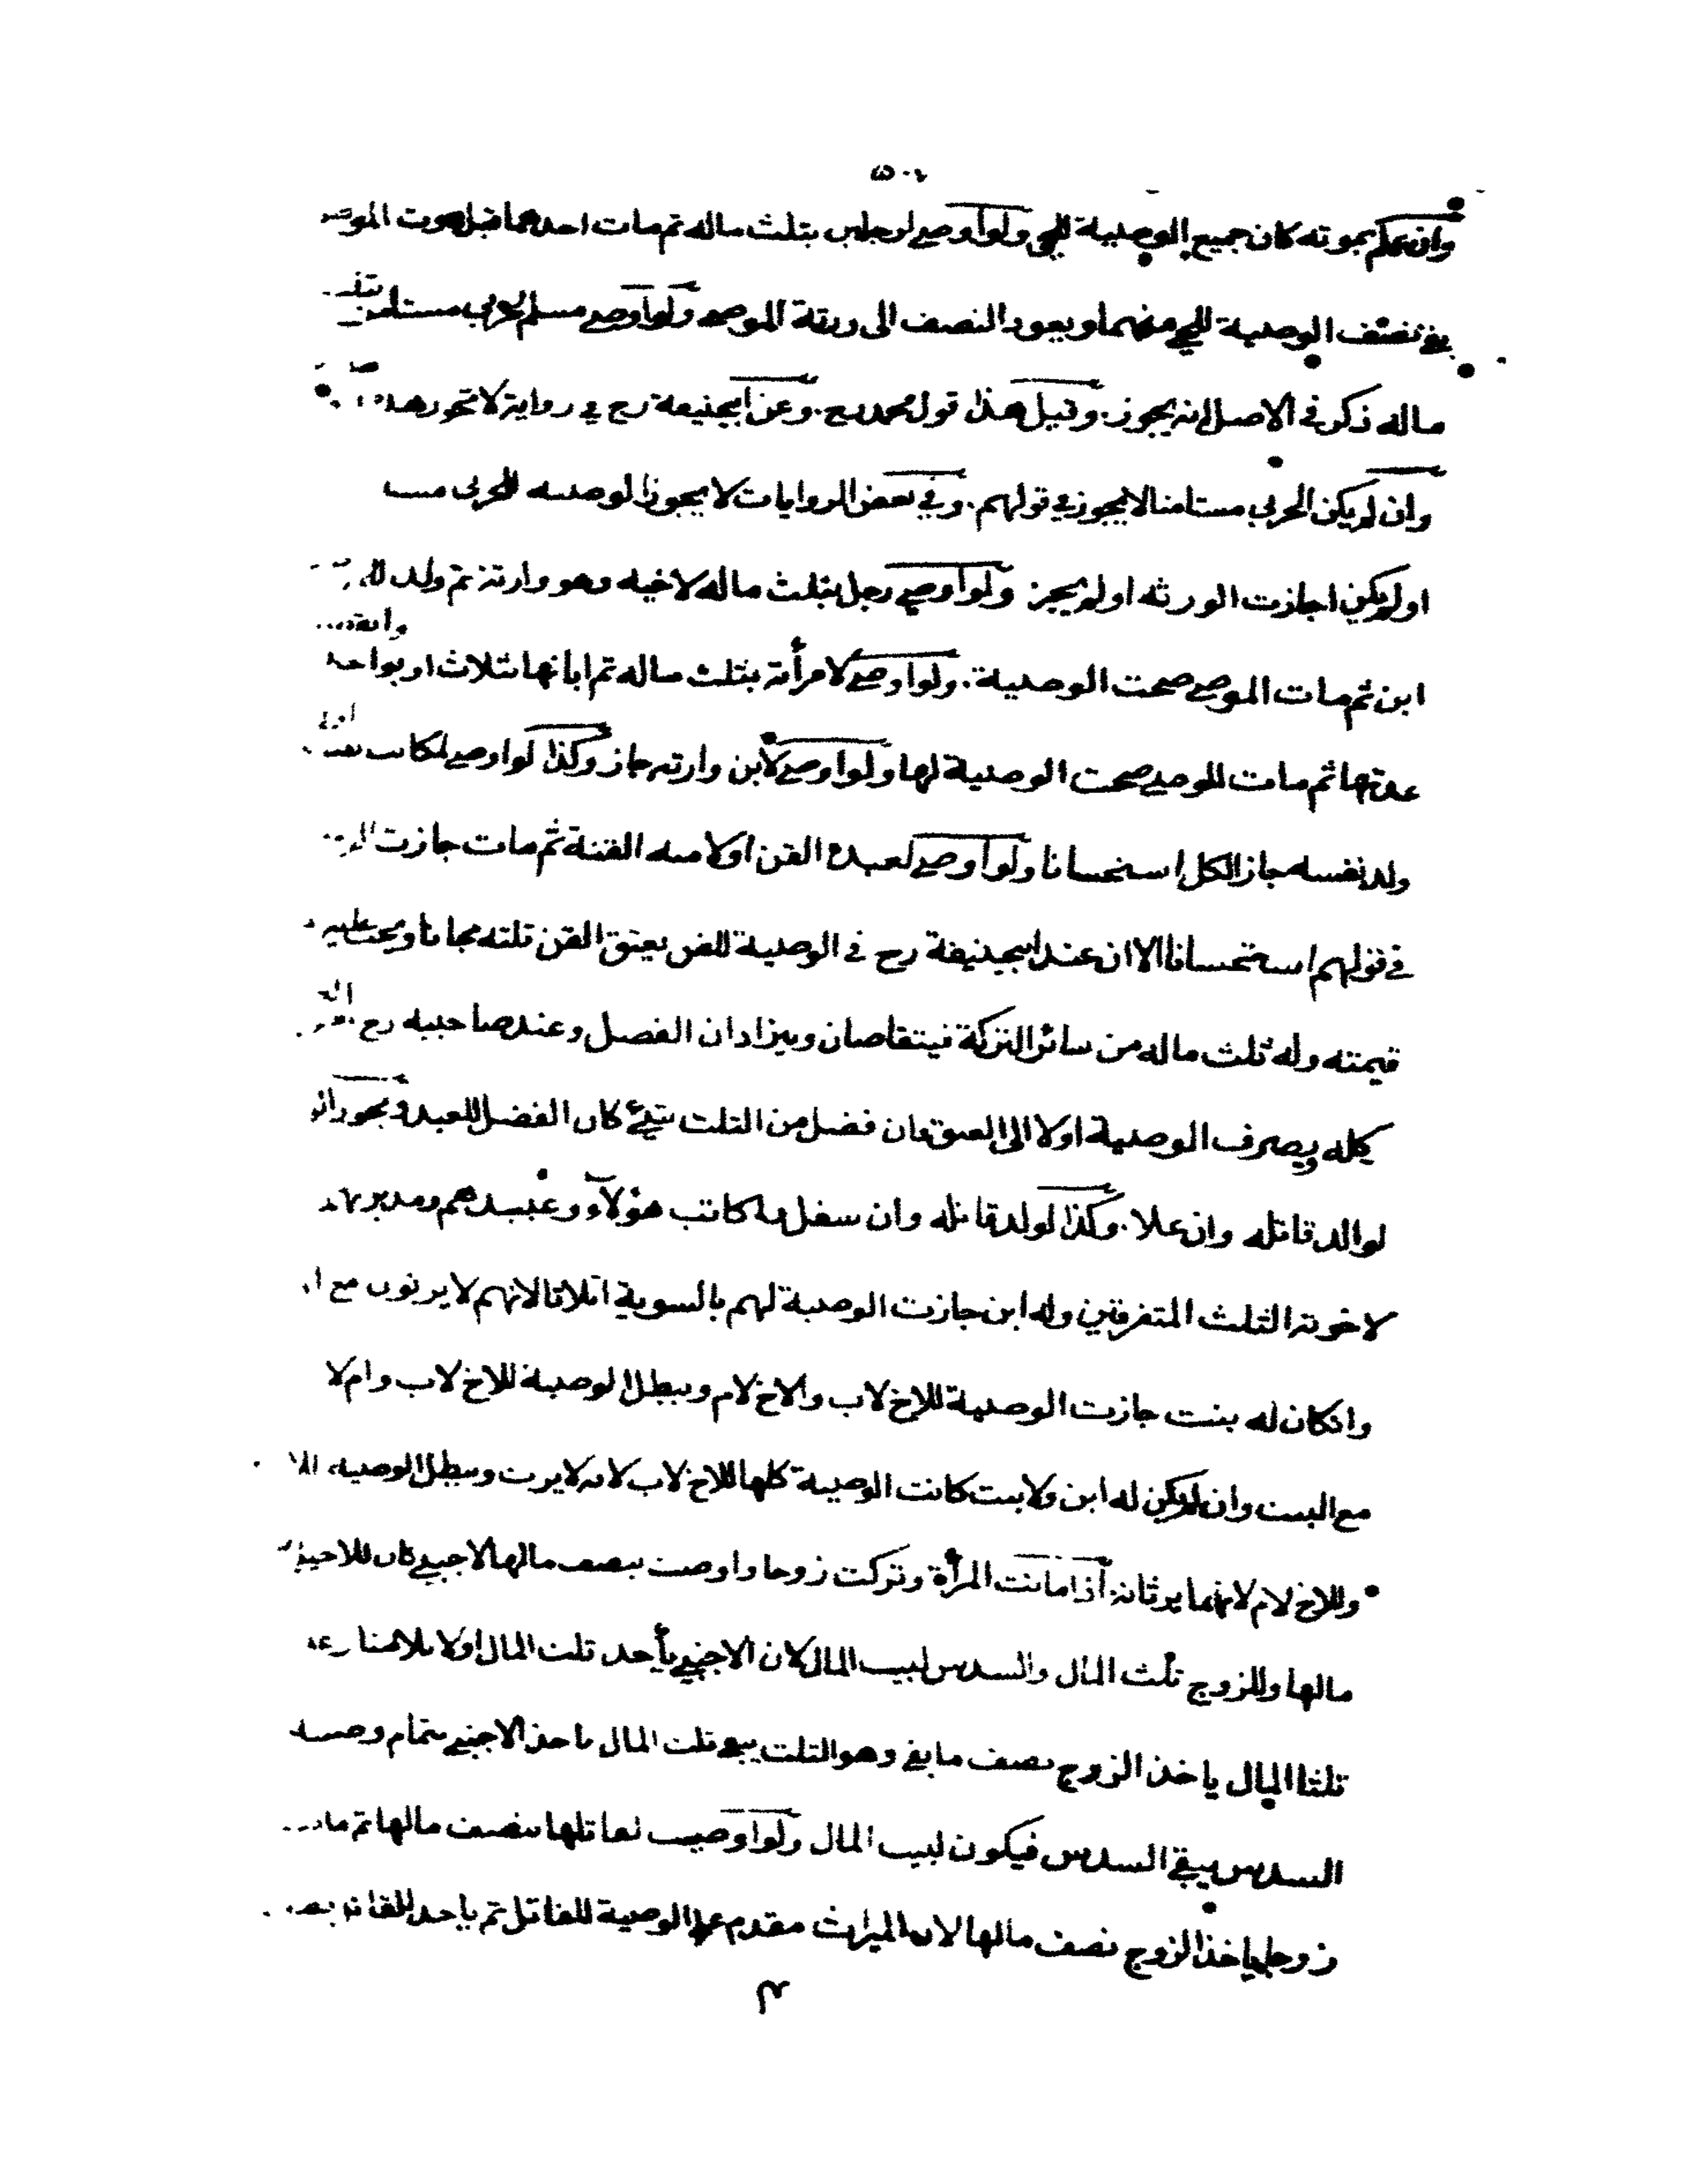 وان علم بموته كان جميع الوصية للحي ولو اوصى لرجلين بثلث ماله ثم مات احدهما قبل موت الموصى
تنصف الوصية للحي منهما ويعود النصف الى ورثة الموصى ولو اوصى مسلم لحربي مستامن بثلث
ماله ذكر في الاصل انه يجوز. وقيل هذا قول محمد رح. وعن ابيحنيفة رح في رواية لا تجوز هذه
وان لم يكن الحربي مستامنا لا يجوز في قولهم. وفي بعض الروايات لا يجوز الوصية للحربي
اولم يكن اجازت الورثه اولم يجز ولو اوصى رجل بثلث ماله لاخيه وهو وارثه ثم ولد له
ابن ثم مات الموصى صحت الوصية. ولو اوصى لامرأته بثلث ماله ثم ابانها بثلاث او بواحدة
عدتها ثم مات الموصى صحت الوصية لها ولو اوصى لابن وارثه جاز وكذا لو اوصى لمكاتب نفسه
ولد نفسه جاز الكل استحسانا ولو اوصى لعبده القن او لامته القنة ثم مات جازت
في قولهم استحسانا الا ان عند ابيحنيفة رح في الوصية للقن يعتق القن ثلثه مجانا ويجب عليه
قيمته وله ثلث ماله من سائر التركة فيتقاصان ويترادان الفضل وعند صاحبيه رح
كله ويصرف الوصية اولا الى العتق فان فضل من الثلث شيئ كان الفضل للعبد ويجوز
لوالد قاتله وان علا. وكذا لولد قاتله وان سفل ولمكاتب هؤلاء وعبيدهم ومدبريهم
لاخوته الثلث المتفرقين وله ابن جازت الوصية لهم بالسوية اثلاثا لانهم لا يرثون مع
وانكان له بنت جازت الوصية للاخ لاب والاخ لام ويبطل الوصية للاخ لاب وام لا
مع البنت وان لم يكن له ابن ولا بنت كانت الوصية كلها للاخ لاب لانه لا يرث ويبطل الوصية
وللاخ لام لانهما يرثانه اذا ماتت المرأة وتركت زوجا واوصت بنصف مالها لاجنبي كان للاجنبي
مالها وللزوج ثلث المال والسدس لبيت المال لان الاجنبي يأخذ ثلث المال اولا بلا منازعة
ثلثا المال ياخذ الزوج نصف ما بقي وهو الثلث يبقى ثلث المال ياخذ الاجنبي بتمام وصيته
السدس يبقى السدس فيكون لبيت المال ولو اوصيت لقاتلها بنصف مالها ثم
زوجها ياخذ الزوج نصف مالها لان الميراث مقدم على الوصية للقاتل ثم ياخذ القاتل